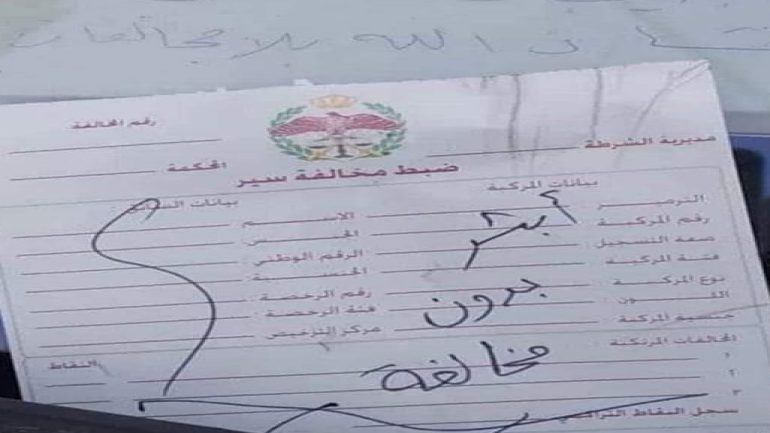 إن شاء الله بلا مخالفات
رقم المخالفة
مديرية الشرطة
المحكمة
ضبط مخالفة سير
بيانات المركبة
بيانات السائق
الترميز
الاسم
رقم المركبة
الجنس
صفة التسجيل
الرقم الوطني
فئة المركبة
الجنسية
نوع المركبة
رقم الرخصة
اللون
فئة الرخصة
جنسية المركبة
مركز الترخيص
أبشر
بدون
مخالفة
المخالفات المرتكبة
النقاط
١
٢
٣
سجل النقاط